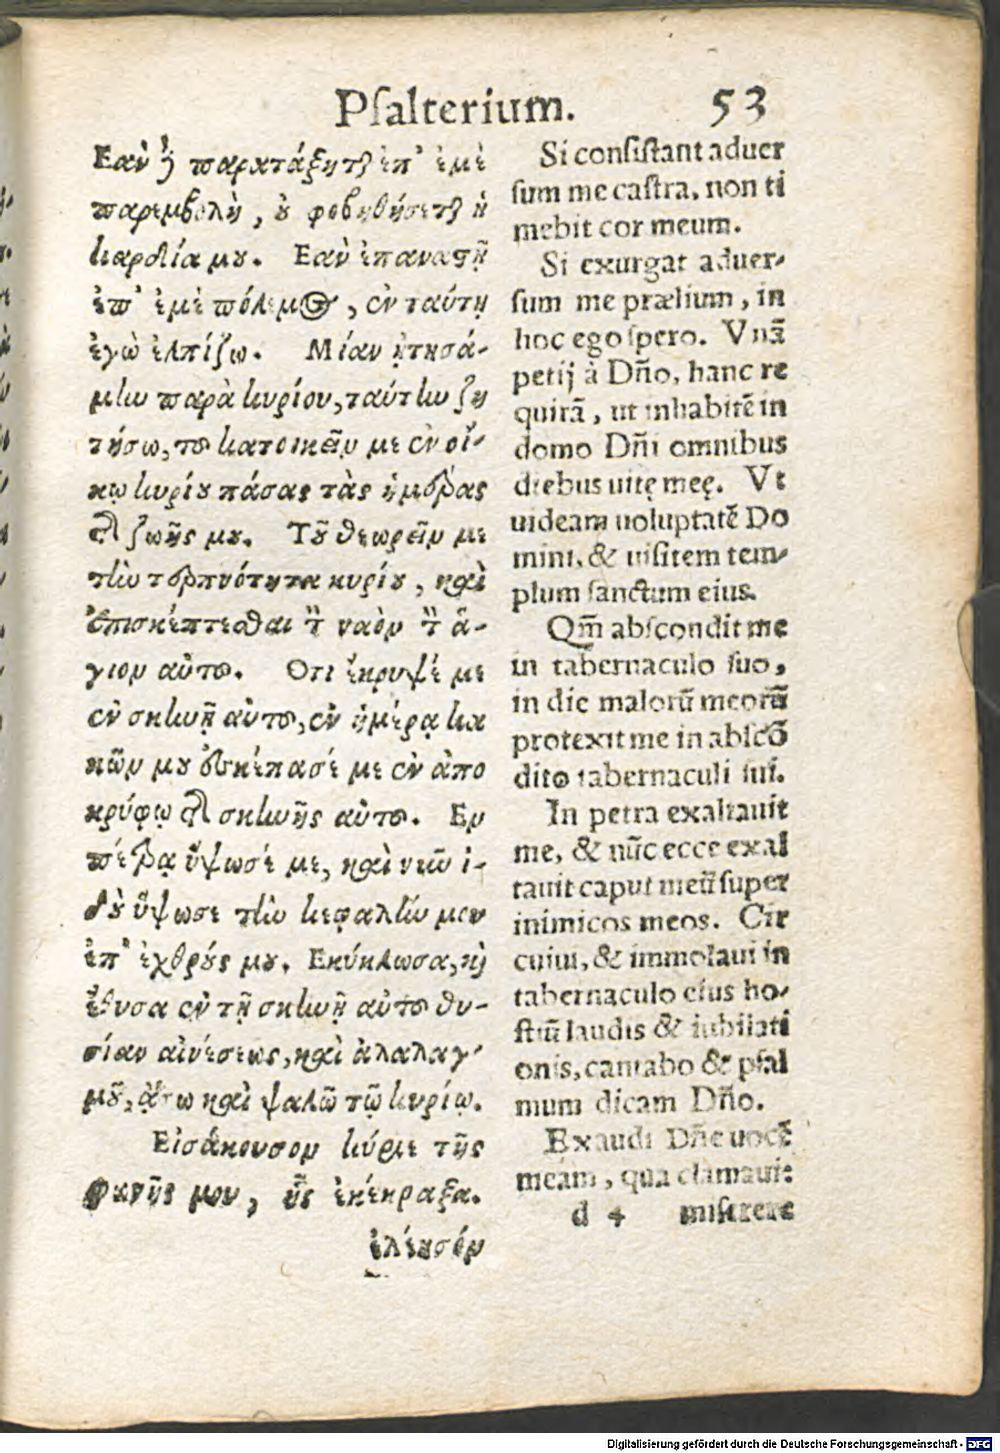 Psalterium. 53
Εαὶ ϟ παραταξητ ἐπ' ἐμὲ
παρεμβολὴ, ȣ φοβηθήσετ ἡ
καρδία μȣ. Εαὶ ἐπαναστῇ
ἐπ' ἐμὲ πόλεμος, ἐν ταύτη
ἐγὼ ἐλπίζω. Μίαν ᾐτησά-
μην παρὰ κυρίου, ταύτην ζη
τήσω, το κατοικεῖν με ἐν οἴ-
κῳ κυρίȣ πάσας τὰς ἡμέρας
τ ζωῆς μȣ. Τȣ͂ θεωρεῖν με
τὴν τερπνότητα κυρίȣ, καὶ
ἐπισκέπτεσθαι τ ναὸν τ ἅ-
γιον αὐτο. Οτι ἔκρυψέ με
ἐν σκηνῇ αὐτο, ἐν ἡμέρᾳ κα
κῶν μȣ ἐσκέπασέ με ἐν ἀπο
κρύφῳ τ σκηνῆς αὐτο. Εν
πέτρᾳ ὕψωσέ με, καὶ νῦν ἰ-
δȣ̀ ὕψωσε τὴν κεφαλήν μου
ἐπ' ἐχθρȣ́ς μȣ. Εκύκλωσα, κὶ
ἔθυσα ἐν τῇ σκηνῇ αὐτο θυ-
σίαν αἰνέσεως, καὶ ἀλαλαγ-
μȣ͂, ᾄσω καὶ ψαλῶ τῷ κυρίῳ.
Εἰσάκουσον κύριε τῆς
φωνῆς μου, ἧς ἐκέκραξα.
ἐλέησόν
Si consistant aduer
sum me castra, non ti
mebit cor meum.
Si exurgat aduer-
sum me prælium, in
hoc ego spero. Vnã
petij à Dño, hanc re
quirã, ut inhabitẽ in
domo Dñi omnibus
diebus uitę meę. Vt
uideam uoluptatẽ Do
mini, & uisitem tem-
plum sanctum eius.
Qm̃ abscondit me
in tabernaculo suo,
in die malorũ meorũ
protexit me in abscõ
dito tabernaculi sui.
In petra exaltauit
me, & nũc ecce exal
tauit caput meũ super
inimicos meos. Cir
cuiui, & immolaui in
tabernaculo eius ho-
stiã laudis & iubilati
onis, cantabo & psal
mum dicam Dño.
Exaudi Dñe uocẽ
meam, qua clamaui:
d 4 miserere
Digitalisierung gefördert durch die Deutsche Forschungsgemeinschaft - DFG